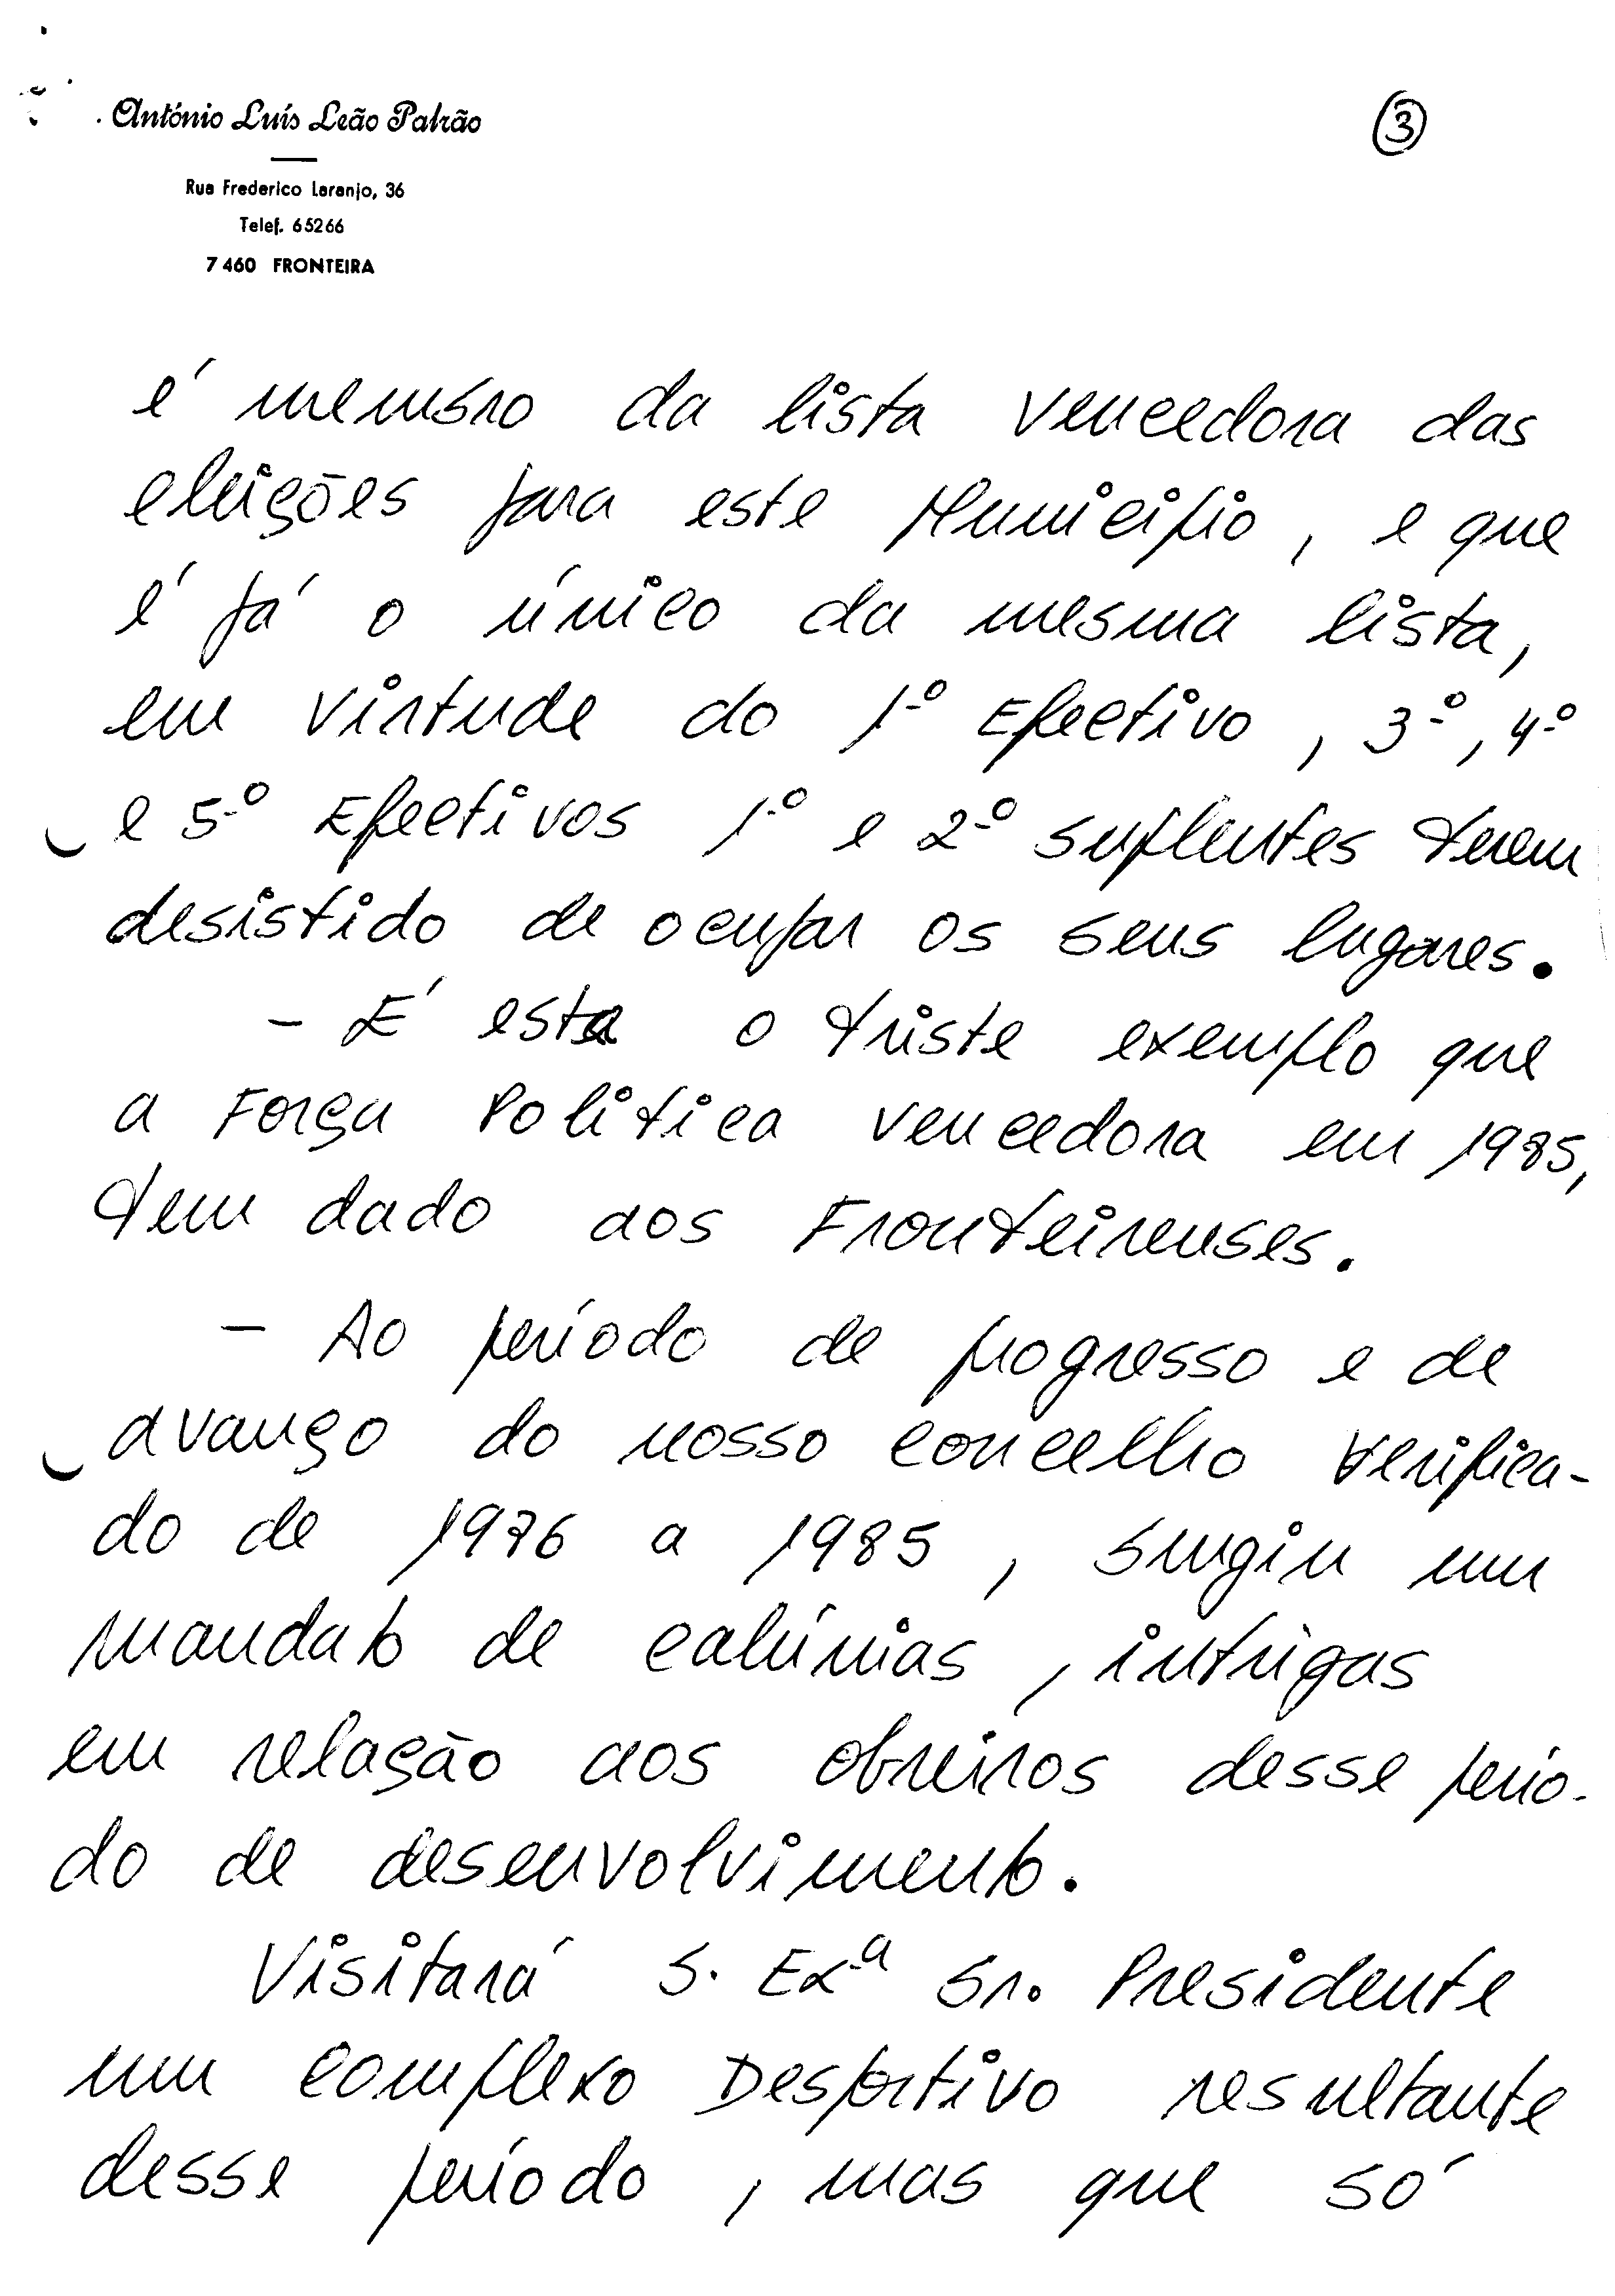 António Luís Leão Patrão
③
Rua Frederico Laranjo, 36
Telef. 65266
7460 FRONTEIRA
é membro da lista vencedora das
eleições para este Município, e que
é já o único da mesma lista,
em virtude do 1º Efectivo, 3º, 4º
e 5º Efectivos 1º e 2º suplentes terem
desistido de ocupar os seus lugares.
- É esta o triste exemplo que
a Força Politica vencedora em 1985,
tem dado aos Fronteirenses.
- Ao período de progresso e de
avanço do nosso concelho verifica-
do de 1976 a 1985, surgiu um
mandato de calúnias, intrigas
em relação aos obreiros desse perío-
do de desenvolvimento.
Visitará S. Exª Sr. Presidente
um complexo Desportivo resultante
desse período, mas que só